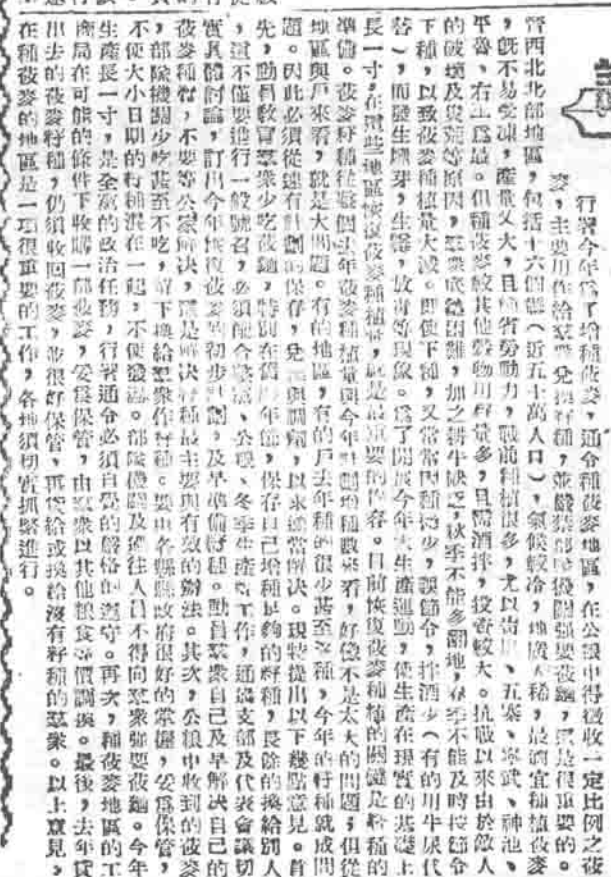 行署今年爲了增種莜麥,通令種莜麥地區,在公糧中得徵收一定比例之莜
麥,主要用作給羣衆兌換籽種,並嚴禁部隊機關強要莜麵,這是很重要的。
晉西北北部地區,包括十六個縣(近五十萬人口),氣候較冷,地廣人稀,最適宜種植莜麥
,既不易受凍,產量又大,且極省勞動力,戰前種植很多,尤以岢嵐、五寨、寧武、神池、
平魯、右玉爲最。但種莜麥較其他穀物用籽量多,且需酒拌,投資較大。抗戰以來由於敵人
的破壞及災荒等原因,羣衆底籽困難,加之耕牛缺乏,秋季不能多翻地,春季不能及時按節令
下種,以致莜麥種植量大減。即使下種,又常常因種籽少,誤節令,拌酒少(有的用牛尿代
替),而發生黑芽,生霉,放青等現象。爲了開展今年大生產運動,使生產在現實的基礎上
長一寸,在這些地區恢復莜麥種植,就是最重要的內容。目前恢復莜麥種植的關鍵是籽種的
準備。莜麥籽種從整個去年莜麥種植量與今年計劃增種數來看,好像不是太大的問題;但從
地區與戶來看,就是大問題。有的地區,有的戶去年種的很少甚至沒種,今年的籽種就成問
題。因此必須從速有計劃的保存,兌換與調劑,以求適當解決。現特提出以下幾點意見。首
先,動員教育羣衆少吃莜麵,特別在舊曆年節,保存自己增種足夠的籽種,長餘的換給別人
,這不僅要進行一般號召,必須配合擁軍、公糧、冬季生產等工作,通過支部及代表會議切
實具體討論,訂出今年恢復莜麥的初步計劃,及早準備籽種。動員羣衆自己及早解決自己的
莜麥種籽,不要等公家解決,這是解決籽種最主要與有效的辦法。其次,公糧中收到的莜麥
,部隊機關少吃甚至不吃,留下換給羣衆作籽種。要由各縣縣政府很好的掌握,妥爲保管,
不使大小日期的籽種混在一起,不使發霉。部隊機關及過往人員不得向羣衆強要莜麵。今年
生產長一寸,是全黨的政治任務,行署通令必須自覺的嚴格的遵守。再次,種莜麥地區的工
商局在可能的條件下收購一部莜麥,妥爲保管,由羣衆以其他糧食等價調換。最後,去年貸
出去的莜麥籽種,仍須收回莜麥,並很好保管,再貸給或換給沒有籽種的羣衆。以上意見,
在種莜麥的地區是一項很重要的工作,各地須切實抓緊進行。